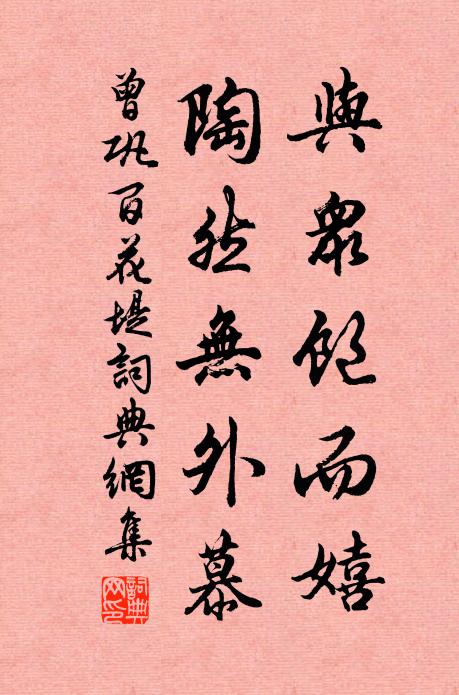 與眾飽而嬉
陶然無外慕
曾巩百花堤詞典網集
詞典網印